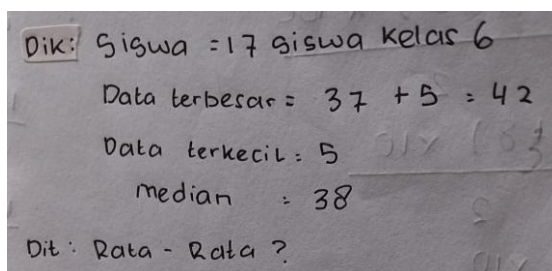 Dik: Siswa = 17 siswa kelas 6
Data terbesar = 37 + 5 = 42
Data terkecil = 5
median = 38
Dit : Rata - Rata ?